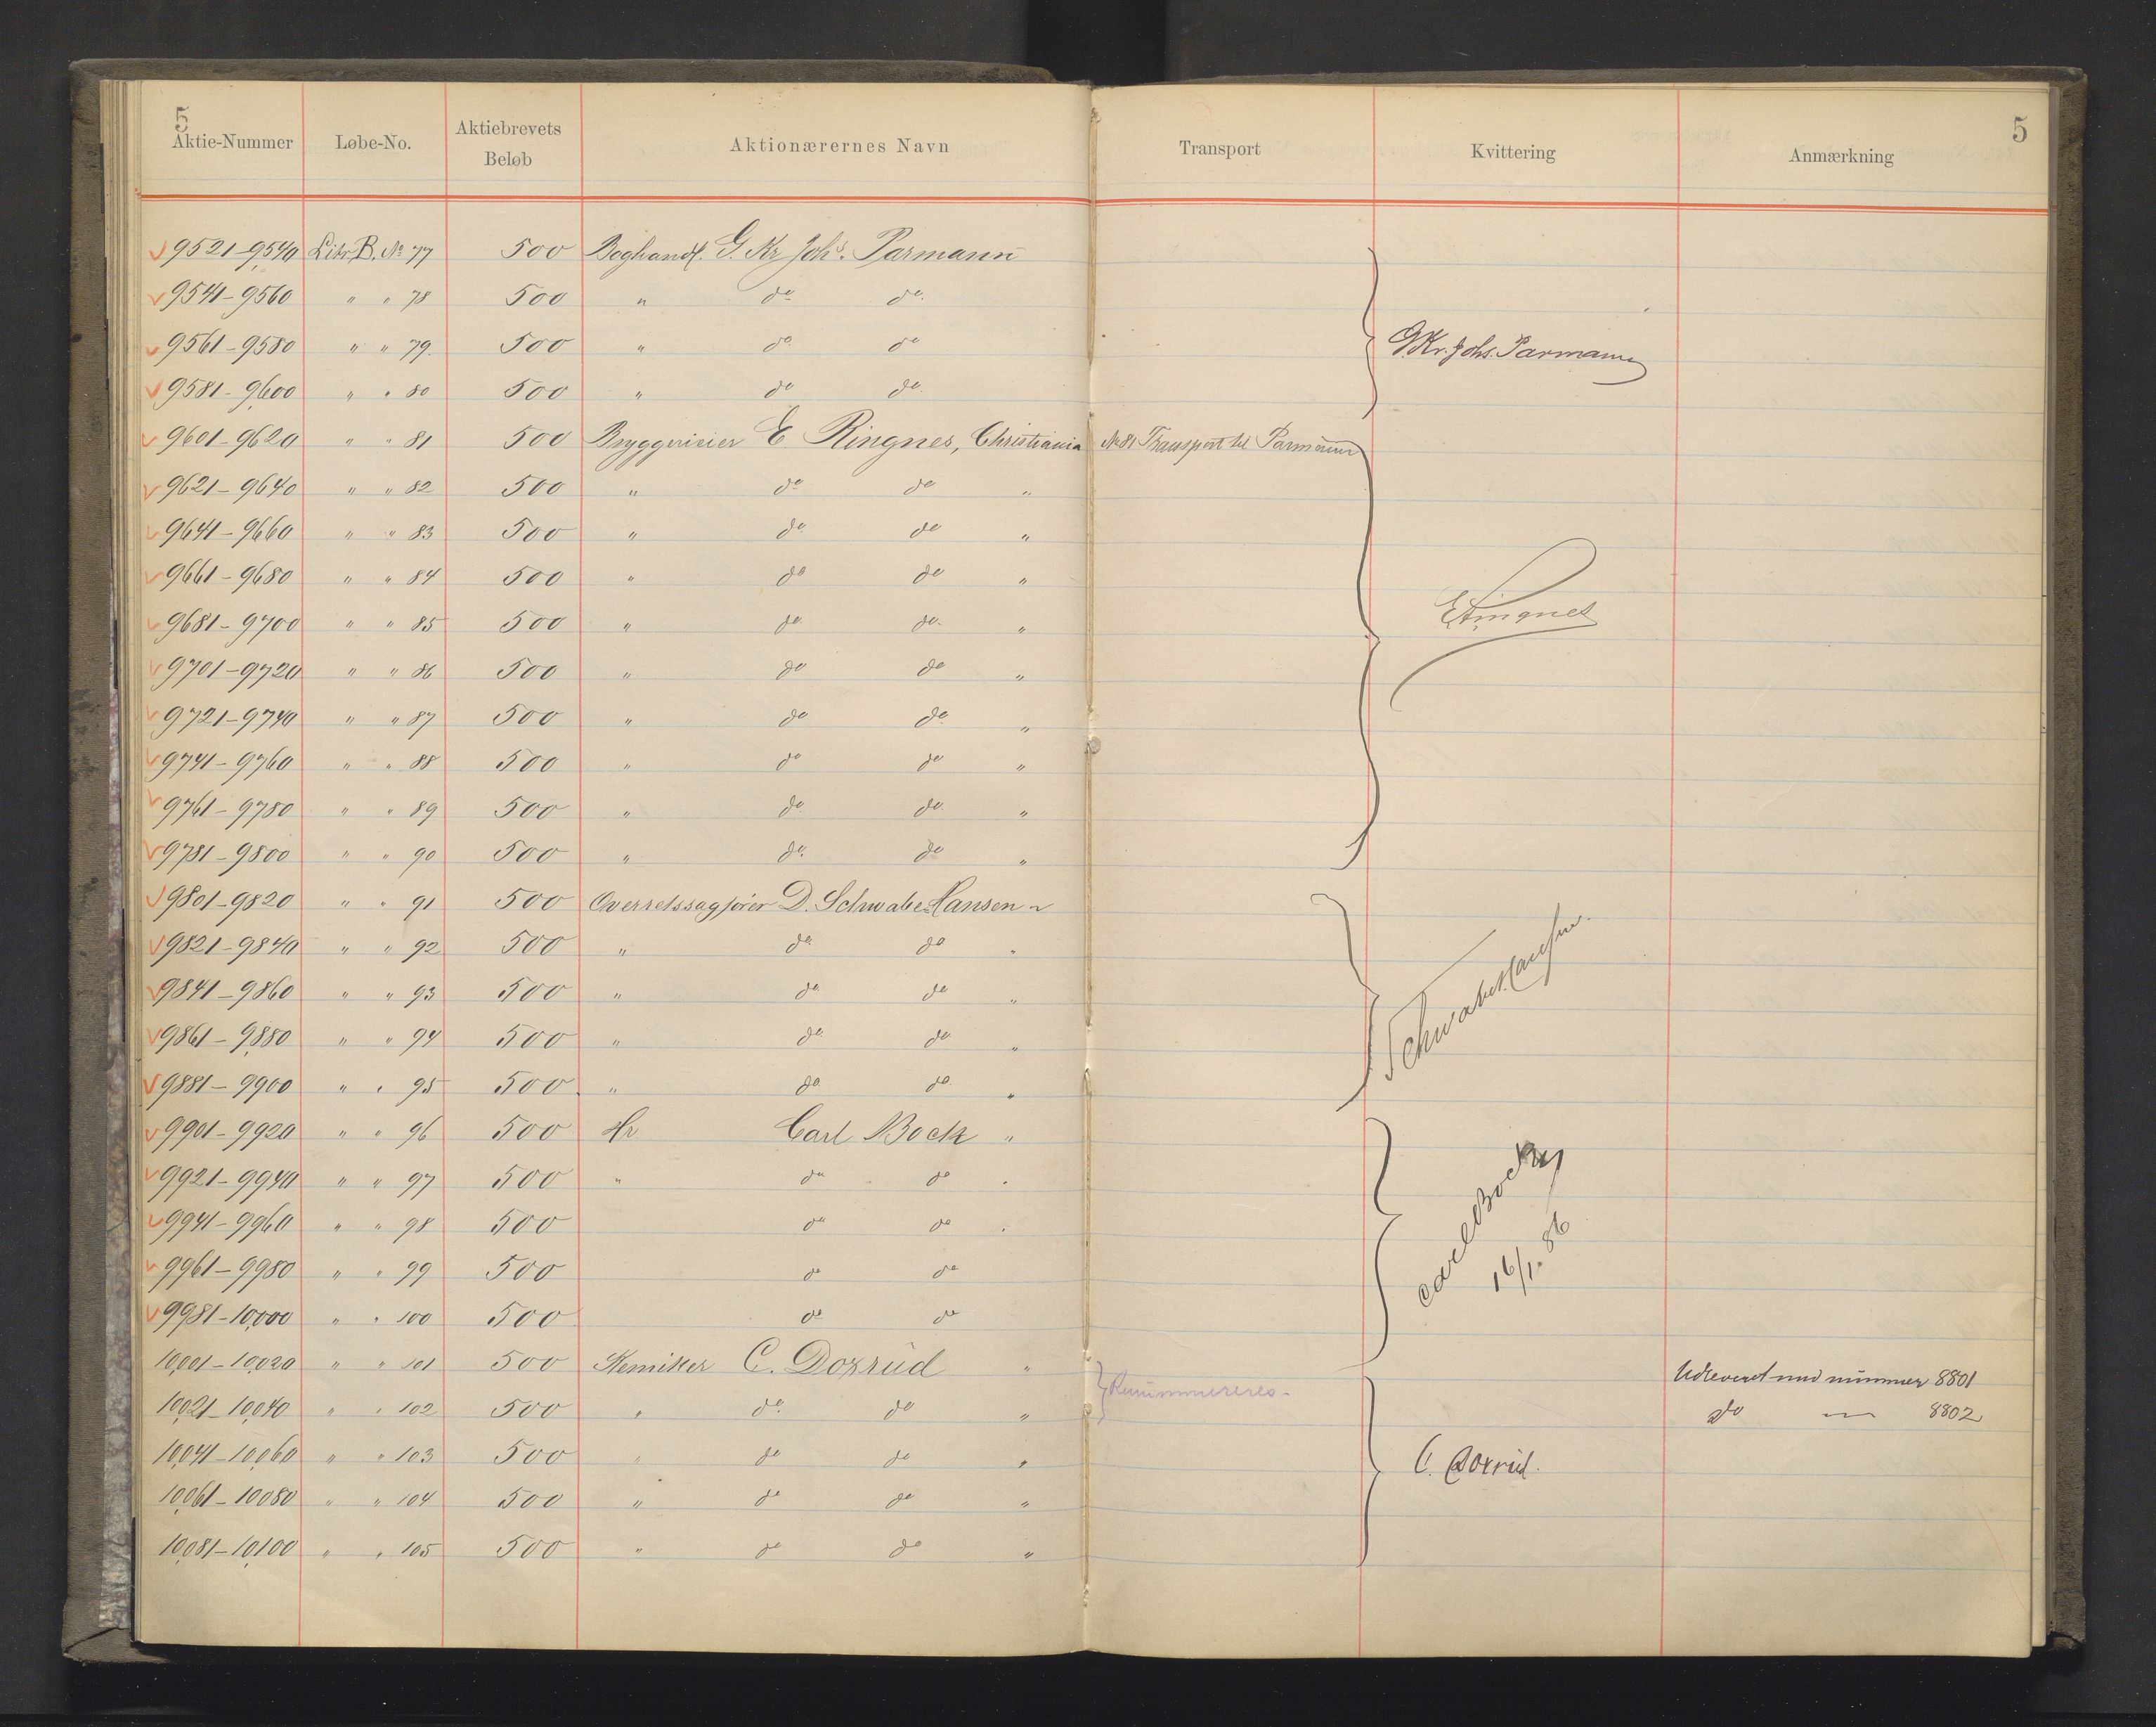 5
Aktie-Nummer Løbe-No. Aktiebrevets Beløb Aktionærernes Navn Transport Kvittering Anmærkning
5
9521-9540 Litr. B. № 77 500 Boghandl. G. Kr Johs. Parmann
9541-9560 " " 78 500 " do do.
9561-9580 " " 79. 500 " do do
G Kr. Johs. Parmann
9581-9600 " " 80 500 " do do.
9601-9620 " " 81 500 Bryggerieier E. Ringnes, Christiania № 81 Transport til Parmann
9621-9640 " " 82 500 " do do "
9641-9660 " " 83 500 " do do "
9661-9680 " " 84 500 " do do "
9681-9700 " " 85 500 " do do. "
E Ringnes
9701-9720 " " 86 500 " do do "
9721-9740 " " 87 500 " do do "
9741-9760 " " 88 500 " do do "
9761-9780 " " 89 500 " do do. "
9781-9800 " " 90 500 " do. do "
9801-9820 " " 91 500 Overretssagfører D. Schwabe Hansen "
9821-9840 " " 92 500 " do do "
9841-9860 " " 93 500 " do do "
Schwabe Hansen.
9861-9880 " " 94 500 " do do "
9881-9900 " " 95 500 " do. do. "
9901-9920 " " 96 500 Hr Carl Bock "
9921-9940 " " 97 500 " do do "
9941-9960 " " 98 500 do do "
Carl Bock
16/1. 86
9961-9980 " " 99 500 do do
9981-10,000 " " 100 500 do do
10,001-10,020 " " 101 500 Kemiker C. Doxrud " Udleveret med nummer 8801
Renummereres.
10,021-10,040 " " 102 500 " do. do " do — 8802
10,041-10,060 " " 103 500 " do do "
C. Doxrud.
10,061-10,080 " " 104 500 " do do "
10,081-10,100 " " 105 500 " do do "